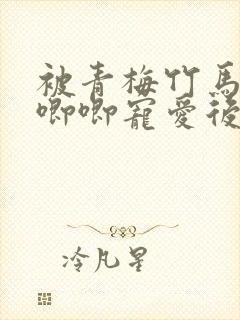 被青梅竹馬
唧唧寵愛後
冷凡星